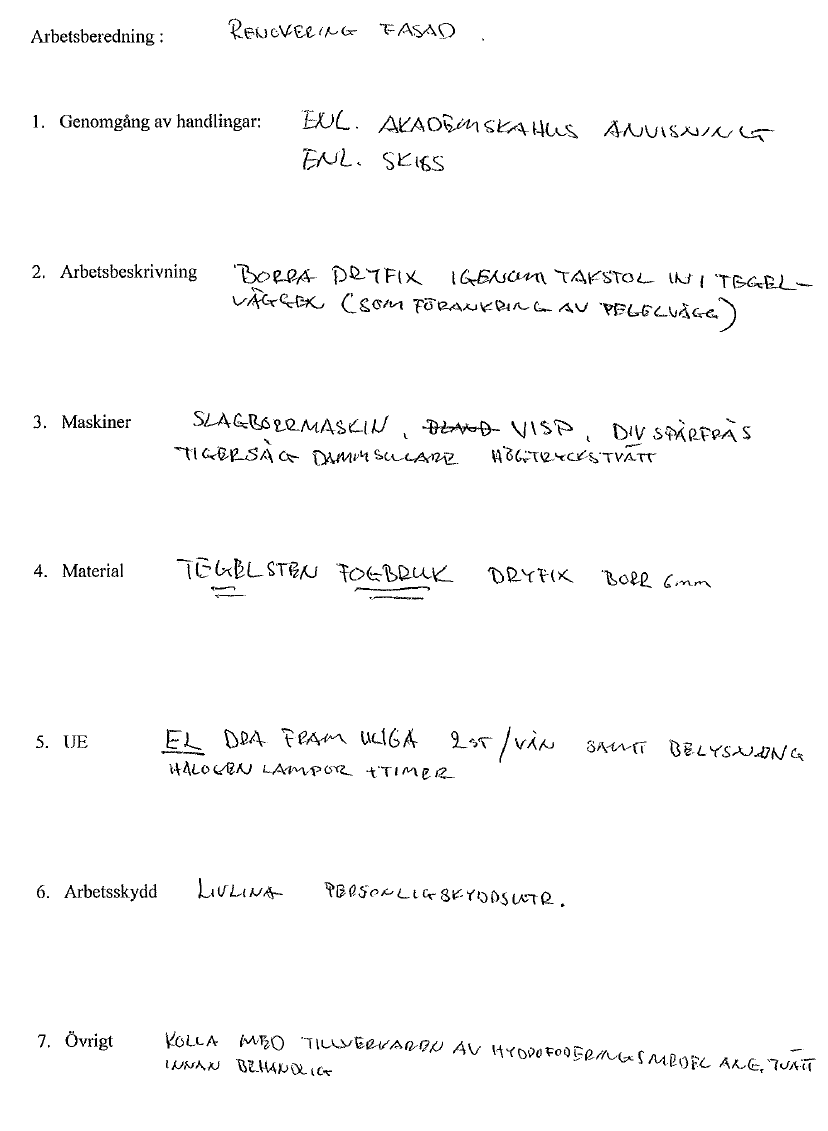 Arbetsberedning : RENOVERING FASAD .
1. Genomgång av handlingar: ENL. AKADEMSKAHUS ANVISNING
ENL. SKISS
2. Arbetsbeskrivning BORRA DRYFIX IGENOM TAKSTOL IN I TEGEL-
VÄGGEN (SOM FÖRANKRING AV
3. Maskiner SLAGBORRMASKIN, VISP, DIV SPÅRFRÄS
TIGERSÅG DAMMSUGARE HÖGTRYCKSTVÄTT
4. Material TEGELSTEN FOGBRUK DRYFIX BORR 6mm
5. UE EL DRA FRAM 2 ST/VÅN SAMT BELYSNING
HALOGEN LAMPOR + TIMER
6. Arbetsskydd LIVLINA PERSONLIGSKYDDSUTR.
7. Övrigt KOLLA MED AV ANG. TVÄTT
INNAN